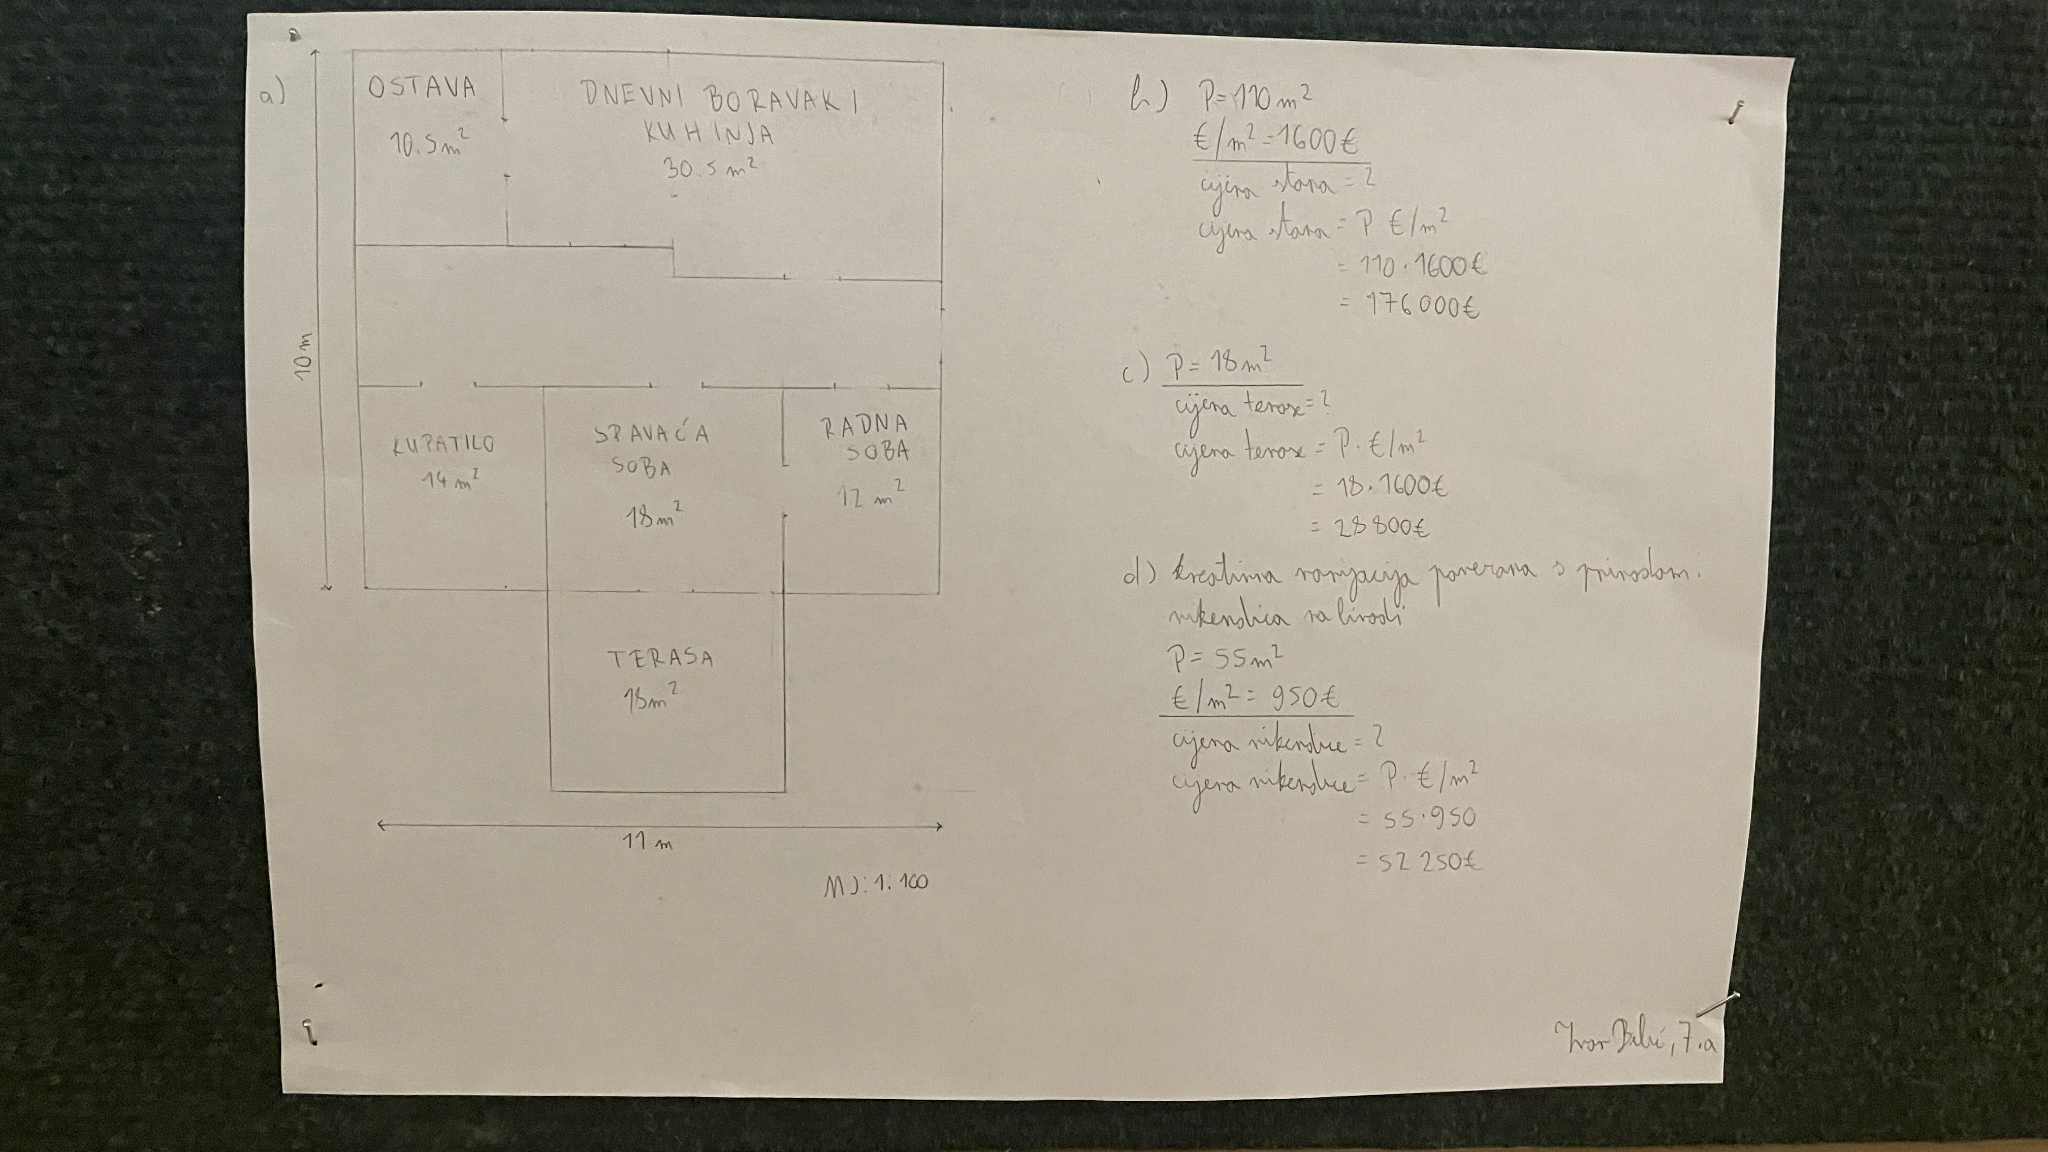 a)
OSTAVA
10.5m²
DNEVNI BORAVAK I
KUHINJA
30.5 m²
10 m
KUPATILO
14 m²
SPAVAĆA
SOBA
18m²
RADNA
SOBA
12 m²
TERASA
18m²
11 m
MJ: 1:100
b) P= 110 m²
€/m² = 1600€
cijena stana = ?
cijena stana = P €/m²
= 110 · 1600€
= 176000€
c) P= 18m²
cijena terase = ?
cijena terase = P · €/m²
= 18 · 1600€
= 28800€
d) kreativna varijacija povezana s prirodom.
vikendica na livadi
P= 55m²
€/m² = 950€
cijena vikendice = ?
cijena vikendice = P · €/m²
= 55 · 950
= 52 250€
7.a